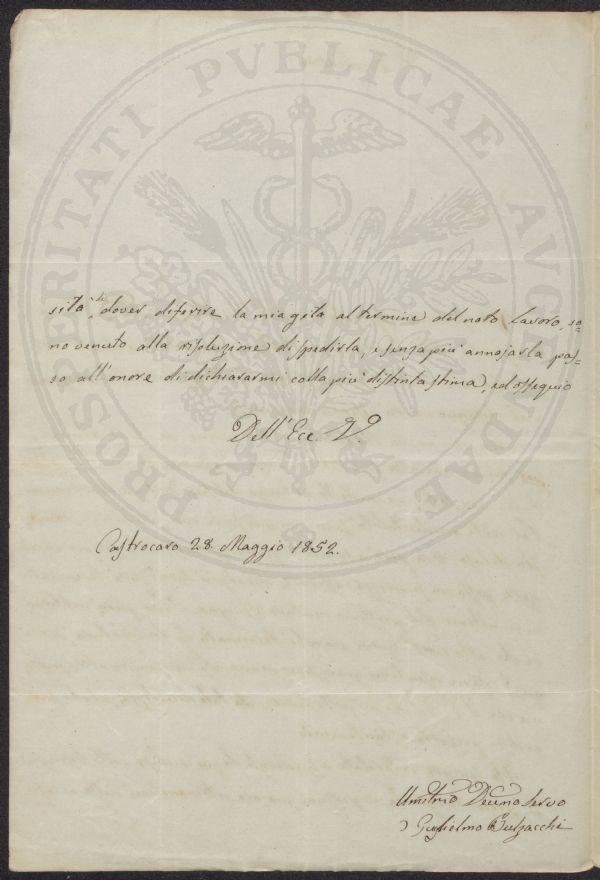 PROSPERITATI PVBLICAE AVGENDAE
sità, di dover diferire la mia gita al termine del noto lavoro, so=
no venuto alla risoluzione di spedirla, e senza più annojarla pas=
so all'onore di dichiararmi colla più distinta stima, ed ossequio
Dell' Ecc. V.
Castrocaro 28. Maggio 1852.
Umilmo Devmo Servo
Guglielmo